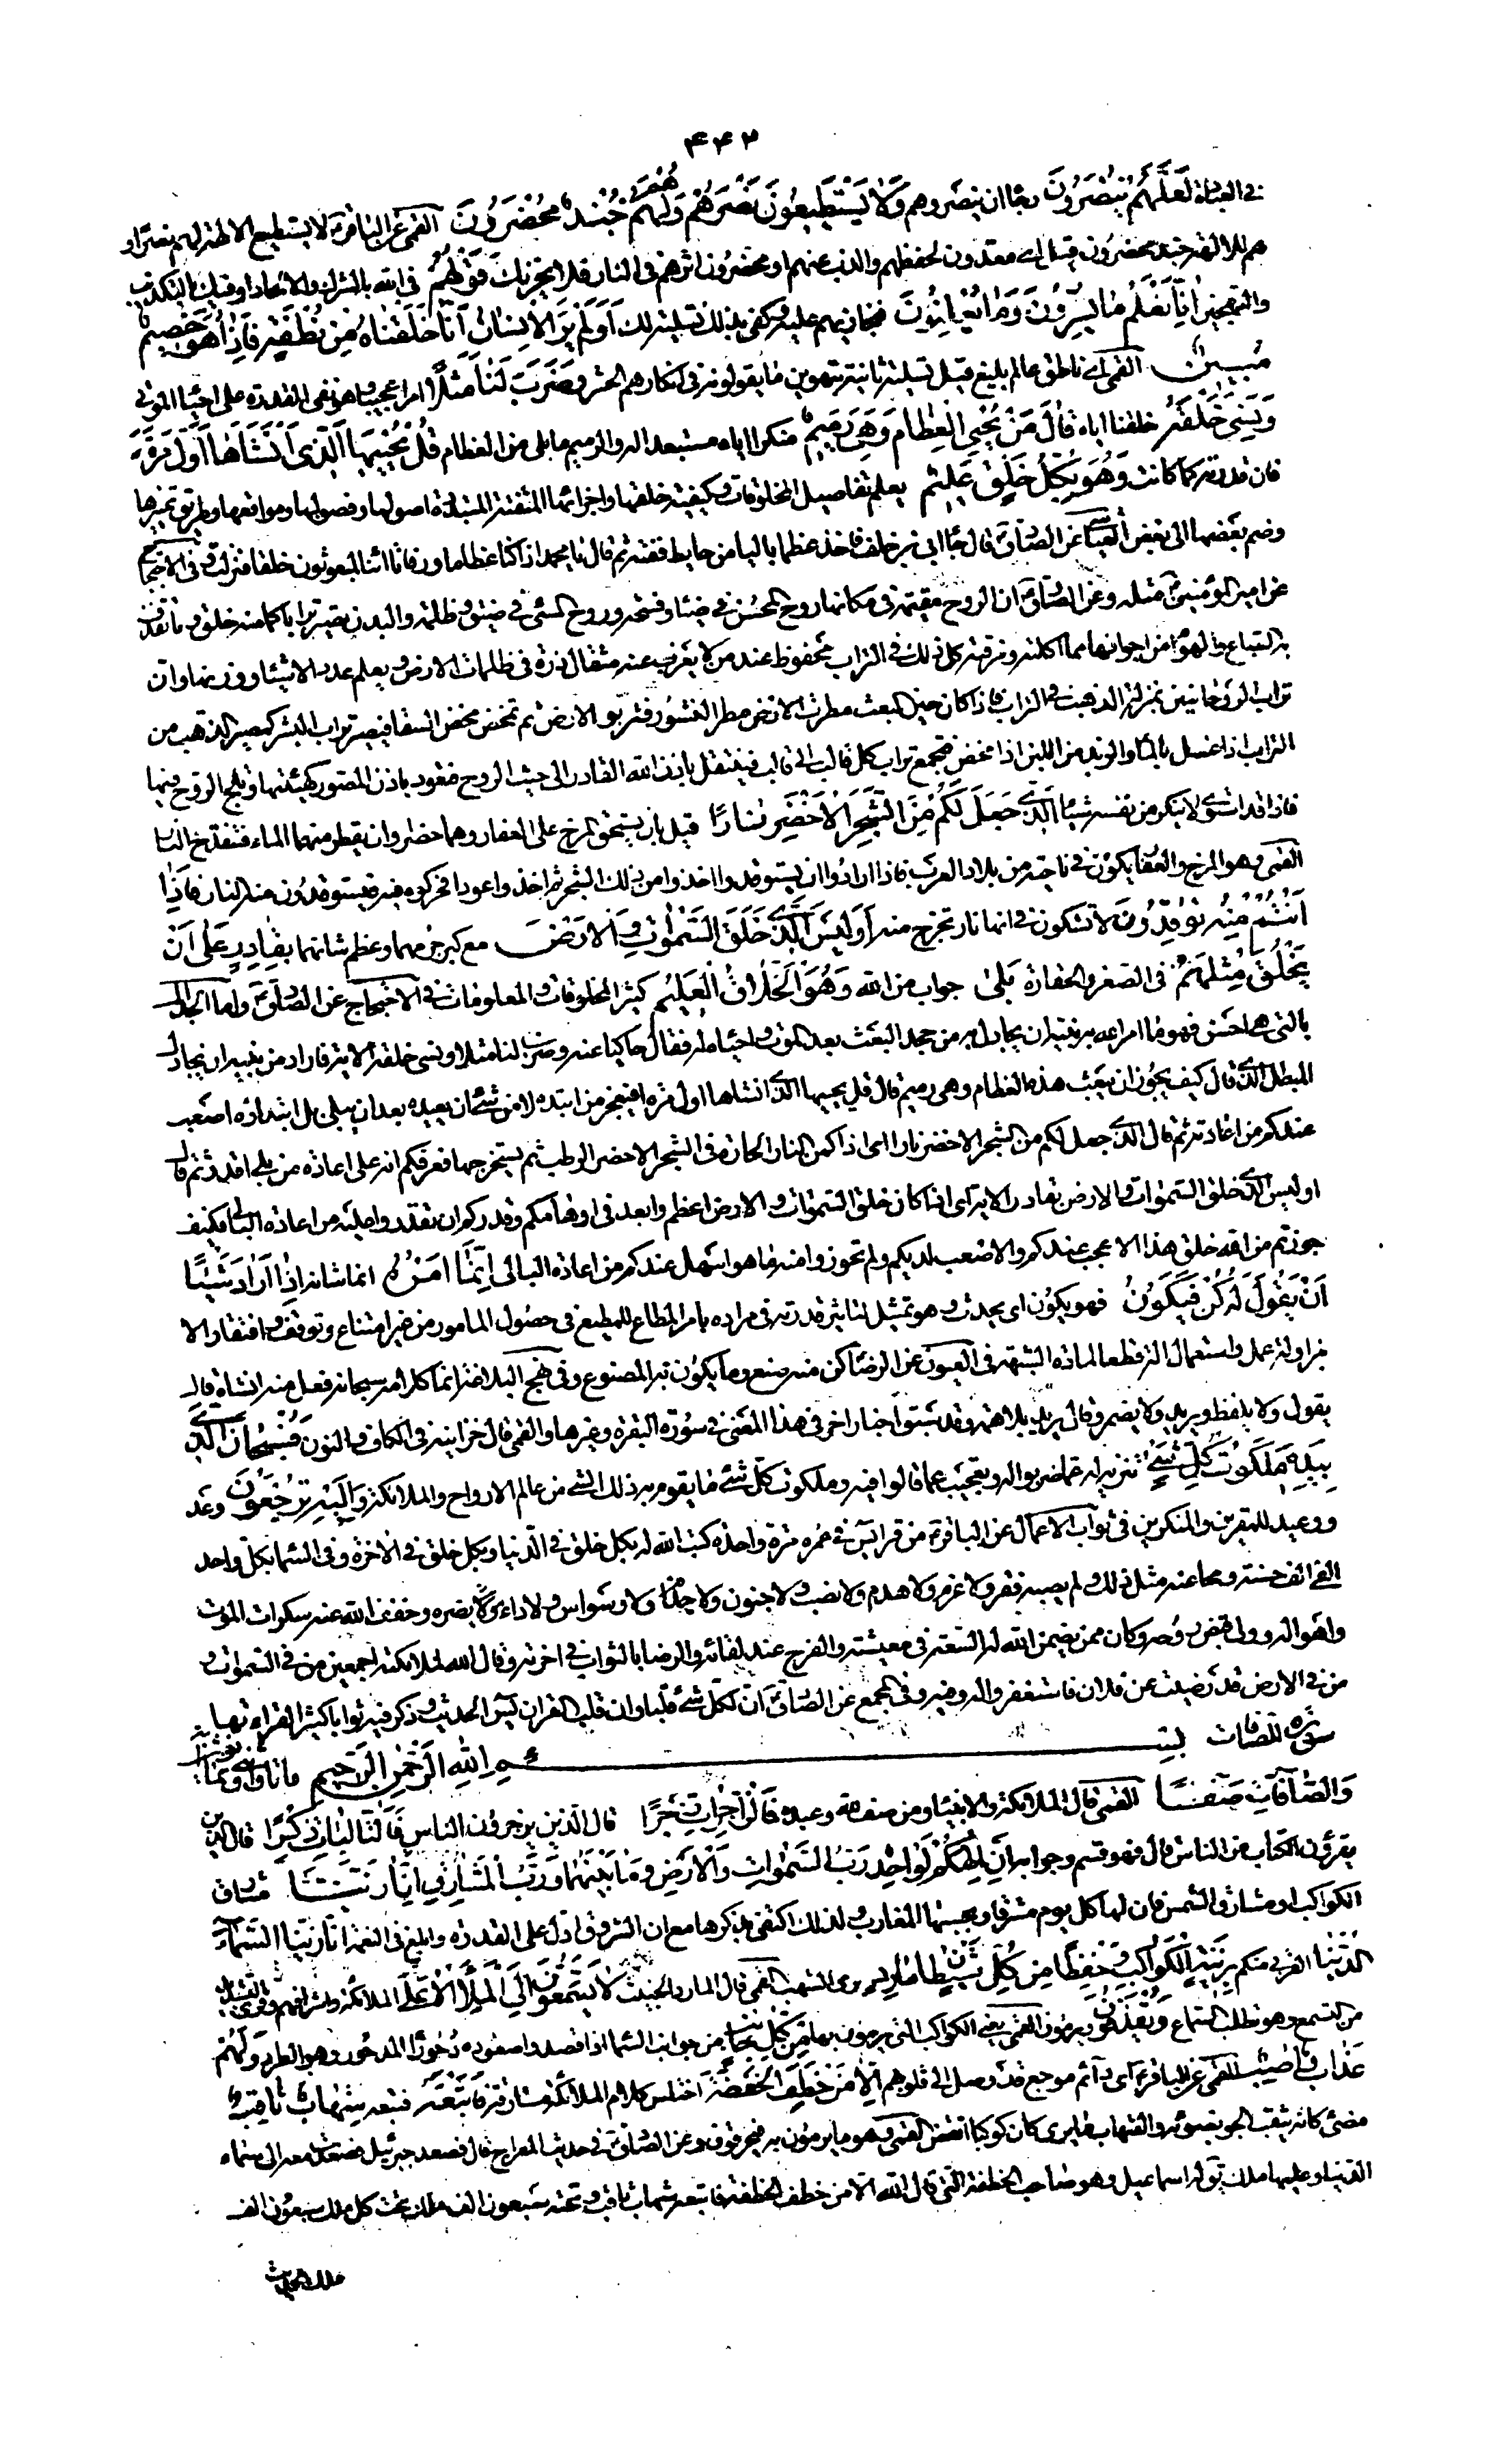 ۴۴۲
في العبادة لَعَلَّهُمْ يُنْصَرُونَ رجاء ان ينصروهم وَلا يَسْتَطيعُونَ نَصْرَهُمْ وَهُمْ لَهُمْ جُنْدٌ مُحْضَرُونَ القمي عن الباقر لا يستطيع الالهة لهم نصرا و
هم للالهة جند محضرون قيل اي معدون لحفظهم والذب عنهم او محضرون اثرهم في النار فلا يَحْزُنْكَ قَوْلُهُمْ في الله بالشرك والالحاد او فيك بالتكذيب
والتهجين اِنّا نَعْلَمُ ما يُسِرُّونَ وَما يُعْلِنُونَ فنجازيهم عليه وكفى بذلك تسلية لك اَوَلَمْ يَرَ الاِنْسانُ اَنّا خَلَقْناهُ مِنْ نُطْفَةٍ فَاِذا هُوَ خَصيمٌ
مُبينٌ القمي اي ناطق عالم بليغ قيل تسلية ثانية بتهوين ما يقولونه في انكارهم الحشر وَضَرَبَ لَنا مَثَلاً امرا عجيبا هو نفي القدرة على احياء الموتى
وَنَسِيَ خَلْقَهُ خلقنا اياه قالَ مَنْ يُحْيِي الْعِظامَ وَهِيَ رَميمٌ منكرا اياه مستبعدا له والرميم ما بلي من العظام قُلْ يُحْييهَا الَّذي اَنْشَاَها اَوَّلَ مَرَّةٍ
فان قدرته كما كانت وَهُوَ بِكُلِّ خَلْقٍ عَليمٌ يعلم تفاصيل المخلوقات وكيفية خلقها واجزائها المتفتتة المتبددة اصولها وفصولها ومواقعها وطريق تميزها
وضم بعضها الى بعض العياشي عن الصادق قال جاء ابي بن خلف فاخذ عظما باليا من حايط ففته ثم قال يا محمد اذا كنا عظاما ورفاتا ائنا لمبعوثون خلقا فنزلت وفي الاحتجاج
عن امير المؤمنين مثله وعن الصادق ان الروح مقيمة في مكانها روح المحسن في ضياء وفسحة وروح المسيء في ضيق وظلمة والبدن يصير ترابا كما منه خلق وما تقذف
به السباع والهوام من اجوافها مما اكلته ومزقته كل ذلك في التراب محفوظ عند من لا يعزب عنه مثقال ذرة في ظلمات الارض ويعلم عدد الاشياء ووزنها وان
تراب الروحانيين بمنزلة الذهب في التراب فاذا كان حين البعث مطرت الارض مطر النشور فتربو الارض ثم تمخض مخض السقاء فيصير تراب البشر كمصير الذهب من
التراب اذا غسل بالماء والزبد من اللبن اذا مخض فيجمع تراب كل قالب الى قالبه فينتقل باذن الله القادر الى حيث الروح فتعود باذن المصور كهيئتها وتلج الروح فيها
فاذا قد استوى لا ينكر من نفسه شيئا اَلَّذي جَعَلَ لَكُمْ مِنَ الشَّجَرِ الاَخْضَرِ نارًا قيل بان يسحق المرخ على العفار وهما خضراوان يقطر منهما الماء فتنقدح النار
القمي وهو المرخ والعفار يكون في ناحية من بلاد العرب فاذا ارادوا ان يستوقدوا اخذوا من ذلك الشجر ثم اخذوا عودا فحركوه فيه فيستوقدون منه النار فَاِذا
اَنْتُمْ مِنْهُ تُوقِدُونَ لا تشكون في انها نار تخرج منه اَوَلَيْسَ الَّذي خَلَقَ السَّمواتِ وَالاَرْضَ مع كبر جرمهما وعظم شانهما بِقادِرٍ عَلى اَنْ
يَخْلُقَ مِثْلَهُمْ في الصغر والحقارة بَلى جواب من الله وَهُوَ الْخَلاّقُ الْعَليمُ كثير المخلوقات والمعلومات في الاحتجاج عن الصادق واما الجدال
بالتي هي احسن فهو ما امر الله به نبيه ان يجادل به من جحد البعث بعد الموت واحياءه له فقال حاكيا عنه وضرب لنا مثلا ونسي خلقه الاية فاراد من نبيه ان يجادل
المبطل الذي قال كيف يجوز ان يبعث هذه العظام وهي رميم قال قل يحييها الذي انشاها اول مرة افيعجز من ابتدء لا من شيء ان يعيده بعد ان يبلى بل ابتداؤه اصعب
عندكم من اعادته ثم قال الذي جعل لكم من الشجر الاخضر نارا اي اذا كمن النار الحارة في الشجر الاخضر الرطب ثم يستخرجها فعرفكم انه على اعادة من بلى اقدر ثم قال
اوليس الذي خلق السموات والارض بقادر الاية اي اذا كان خلق السموات والارض اعظم وابعد في اوهامكم وقدركم ان تقدروا عليه من اعادة البالي فكيف
جوزتم من الله خلق هذا الاعجب عندكم والاصعب لديكم ولم تجوزوا منه ما هو اسهل عندكم من اعادة البالي اِنَّما اَمْرُهُ انما شانه اِذا اَرادَ شَيْئًا
اَنْ يَقُولَ لَهُ كُنْ فَيَكُونُ فهو يكون اي يحدث وهو تمثيل لتاثير قدرته في مراده بامر المطاع للمطيع في حصول المامور من غير امتناع وتوقف وافتقار الى
مزاولة عمل واستعمال الة قطعا لمادة الشبهة في العيون عن الرضا كن منه صنع وما يكون به المصنوع وفي نهج البلاغة انما كلامه سبحانه فعل منه انشاه قال
يقول ولا يلفظ ويريد ولا يضمر وقال يريد بلا همة وقد سبق اخبار اخر في هذا المعنى في سورة البقرة وغيرها والقمي قال خزاينه في الكاف والنون فَسُبْحانَ الَّذي
بِيَدِهِ مَلَكُوتُ كُلِّ شَيْءٍ تنزيه له عما ضربوا له وتعجيب عما قالوا فيه وملكوت كل شيء ما يقوم به ذلك الشيء من عالم الارواح والملائكة وَاِلَيْهِ تُرْجَعُونَ وعد
ووعيد للمقرين والمنكرين في ثواب الاعمال عن الباقر من قرا يس في عمره مرة واحدة كتب الله له بكل خلق في الدنيا وبكل خلق في الاخرة وفي السماء بكل واحد
الفي الف حسنة ومحا عنه مثل ذلك ولم يصبه فقر ولا غرم ولا هدم ولا نصب ولا جنون ولا جذام ولا وسواس ولا داء يضره وخفف الله عنه سكرات الموت
واهواله وولى قبض روحه وكان ممن يضمن الله له السعة في معيشته والفرج عند لقائه والرضا بالثواب في اخرته وقال الله لملائكته اجمعين من في السموات و
من في الارض قد رضيت عن فلان فاستغفروا له وفيه وفي المجمع عن الصادق ان لكل شيء قلبا وان قلب القران يس الحديث وذكر فيه ثوابا كثيرا لقراءتها
سورة الصافات بسم الله الرحمن الرحيم
وَالصّافّاتِ صَفًّا القمي قال الملائكة والانبياء ومن صف لله وعبده فَالزّاجِراتِ زَجْرًا قال الذين يزجرون الناس فَالتّالِياتِ ذِكْرًا قال الذين
يقرؤن الكتاب من الناس قال فهو قسم وجوابه اِنَّ اِلهَكُمْ لَواحِدٌ رَبُّ السَّمواتِ وَالاَرْضِ وَما بَيْنَهُما وَرَبُّ الْمَشارِقِ اِنّا زَيَّنَّا مشارق
الكواكب او مشارق الشمس فان لها كل يوم مشرقا وبحسبها المغارب ولذلك اكتفى بذكرها مع ان الشروق ادل على القدرة وابلغ في النعمة انا زينا السَّماءَ
الدُّنْيا القربى منكم بِزينَةٍ الْكَواكِبِ وَحِفْظًا مِنْ كُلِّ شَيْطانٍ مارِدٍ برمي الشهب القمي قال المارد الخبيث لا يَسَّمَّعُونَ اِلَى الْمَلَاِ الاَعْلى الملائكة واشرافهم وقرئ بالتشديد
من التسمع وهو تطلب السماع وَيُقْذَفُونَ ويرمون القمي يعني الكواكب التي يرمون بها مِنْ كُلِّ جانِبٍ من جوانب السماء اذا قصدوا صعوده دُحُورًا المدحور وهو الطرد وَلَهُمْ
عَذابٌ واصِبٌ القمي عن الباقر اي دائم موجع قد وصل الى قلوبهم اِلاّ مَنْ خَطِفَ الْخَطْفَةَ اختلس كلام الملائكة مسارقة فَاَتْبَعَهُ فتبعه شِهابٌ ثاقِبٌ
مضيء كانه يثقب الجو بضوئه والشهاب ما يرى كان كوكبا انقض القمي وهو ما يرمون به فيحرقون وعن الصادق في حديث المعراج قال فصعد جبرئيل وصعدت معه الى سماء
الدنيا وعليها ملك يقال له اسماعيل وهو صاحب الخطفة التي قال الله الا من خطف الخطفة فاتبعه شهاب ثاقب وتحته سبعون الف ملك تحت كل ملك سبعون الف
ملك الحديث